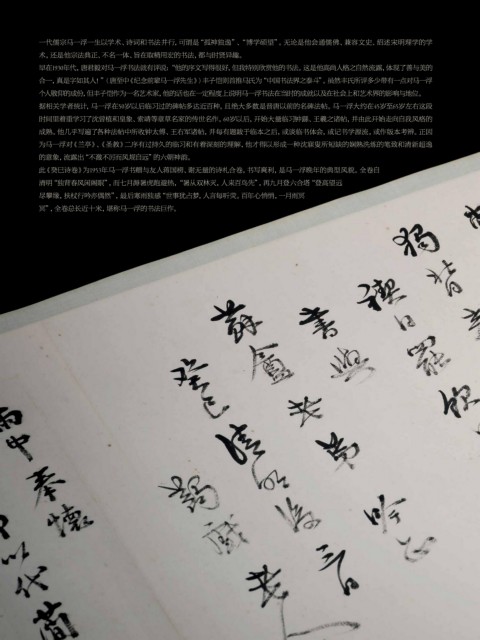 一代儒宗马一浮一生以学术、诗词和书法并行，可谓是“孤神独逸”、“博学硕望”。无论是他会通儒佛、兼容文史、绍述宋明释学的学
术，还是他宗法典正、不名一体、旨在取精用宏的书法，都与时贤异趣。
早在1930年代，唐君毅对马一浮书法就有评说：“他的字文写得很好。但我特别欣赏他的书法，这是他底向人格之自然流露，体现了善与美的
合一，真是字如其人！”（唐至中《纪念前辈马一浮先生》）丰子恺则首推马氏为“中国书法界之泰斗”，虽然丰氏所评多少带有一点对马一浮
个人敬仰的成份，但丰子恺作为一名艺术家，他的话也在一定程度上说明马一浮书法在当时的成就以及在社会上和艺术界的影响与地位。
据相关学者统计，马一浮在50岁以后临习过的碑帖多达近百种，且绝大多数是晋唐以前的名碑法帖。马一浮大约在45岁至61岁左右这段
时间里着重学习了沈曾植和皇象、索靖等章草名家的传世名作。60岁以后，开始大量临习钟繇、王羲之诸帖，并由此开始走向自我风格的
成熟。他几乎写遍了各种法帖中所收钟太傅、王右军诸帖，并每有题跋于临本之后，或谈临书体会，或记书学源流，或作版本考辨。正因
为马一浮对《兰亭》、《圣教》二序有过持久的临习和有着深刻的理解，他才得以形成一种沈寐叟所短缺的娴熟洗炼的笔致和清新超逸
的意象，流露出“不激不厉而风规自远”的六朝神韵。
此《癸巳诗卷》为1953年马一浮书赠与友人蒋国榜、谢无量的诗札合卷，书写爽利，是马一浮晚年的典型风貌。全卷自
清明“独背春风闲闹眠”，而七月游暑虎跑避热，“暑从双林灭，人来百鸟先”，再九月登六合塔“登高望远
尽攀缘，扶杖行吟亦偶然”，最后寒雨枯感“世事犹占梦，人言每听荧。百年心悄悄，一月雨冥
冥”，全卷总长近十米，堪称马一浮的书法巨作。
独背
禊日罢饮
书与
苏盦老弟吟正
癸巳清明后三日
蠲戏老人
雨中奉怀
以代简